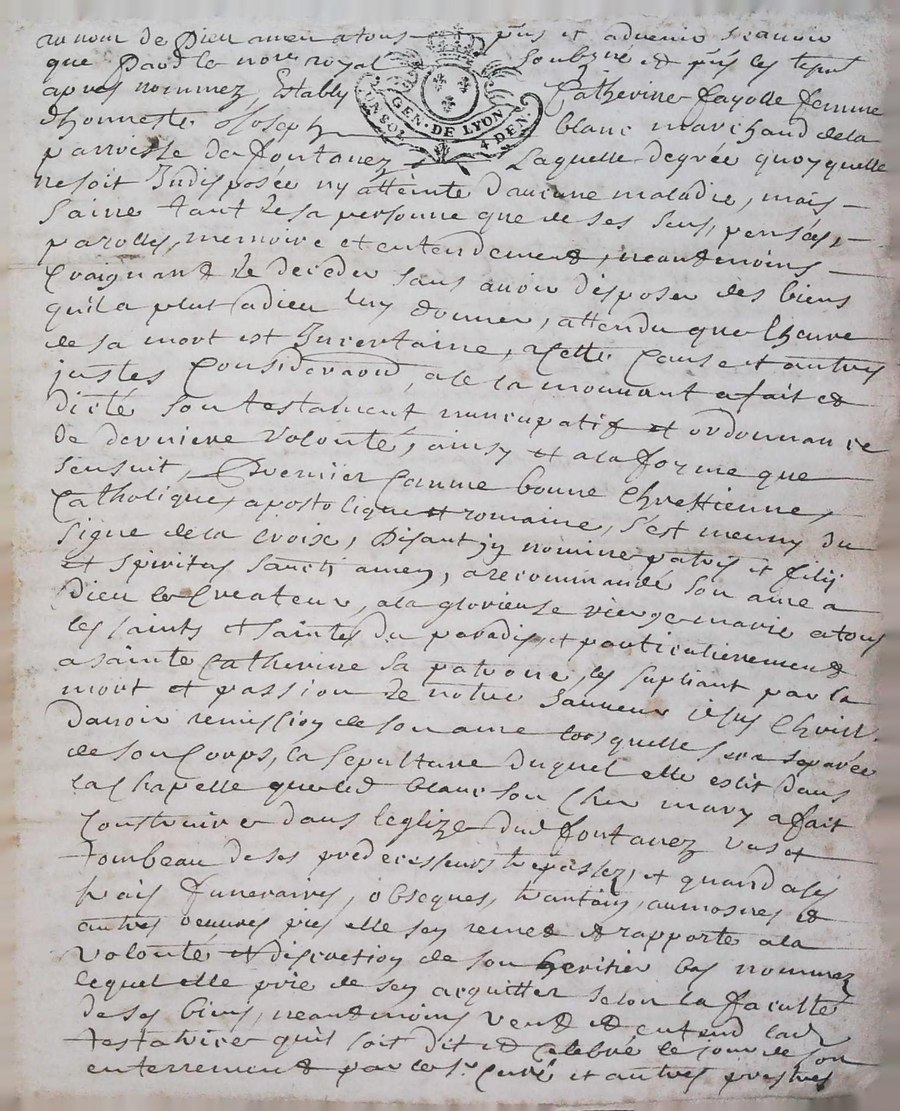 au nom de Dieu amen a tous pñs et advenir scavoir
que pard. le not.re royal soubzné et pñs les tesm.
apres nommez, Establye Catherine fayolle femme
d'honneste Joseph blanc marchand de la
parroisse de fontanez Laquelle degrée quoyquelle
ne soit Indisposée ny atteinte d'aucune maladie, mais
Saine tant de sa personne que de ses sens, pensées,
parolles, memoire et entendement, neantmoins
Craignant de deceder sans avoir disposer des biens
quil a plut a dieu luy donner, attendu que lheure
de sa mort est Incertaine, a Cette Cause et autres
justes Considerãons, a de la mouvant a fait et
dicté Son testament nuncupatif et ordonnance
de derniere volonté, ainsy et a la forme que
sensuit, Premier Comme bonne Chrettienne,
Catholique, apostolique et romaine, s'est muny du
Signe de la croix, Disant jn nomine patris et filij
et spiritus Sancti amen, a recommandé Son ame a
Dieu le Createur, a la glorieuse vierge marie a tous
les saints et saintes du paradis et particulierement
a sainte Catherine sa patrone, les supliant par la
mort et passion de notre Sauveur jesus Christ
davoir remission de son ame lors quelle sera separée
de son Corps, la sepulture duquel elle eslit dans
la Chapelle que led. blanc son Cher mary a fait
Construire dans leglize dud. fontanez vas et
tombeau de ses predecesseurs trepassez, et quand a ses
frais funeraires, obseques, trantain, aumosnes et
autres oeuvres pies elle sen remet et rapporte a la
Volonté et discretion de son heritier bas nommez
lequel elle prie de sen acquitter selon la faculté
de ses biens, neantmoins veut et entend lad.
testatrice quil soit dit et celebré le jour de son
enterrement par le Sr. Curé et autres prestres
GEN. DE LYON
4 DEN.